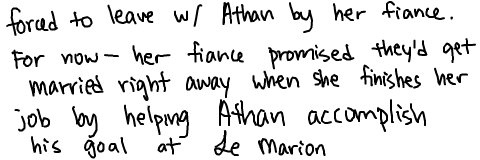 forced to leave w/ Athan by her fiance.
For now — her fiance promised they'd get
married right away when she finishes her
job by helping Athan accomplish
his goal at Le Marion